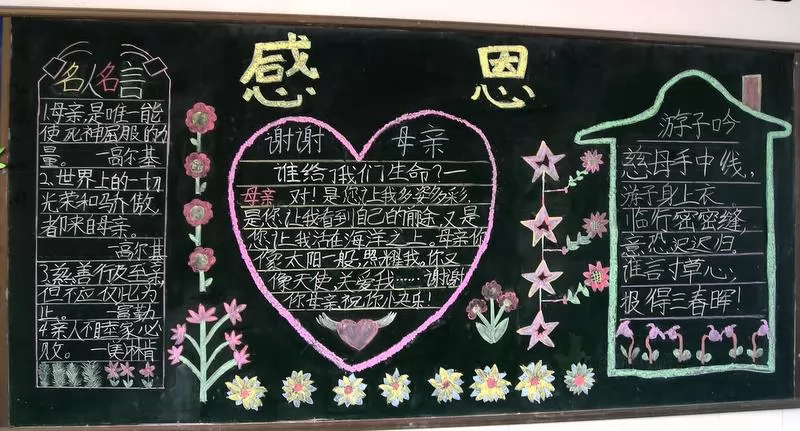 感恩
名人名言
1.母亲是唯一能
使死神屈服的力
量。 —高尔基
2.世界上的一切
光荣和骄傲,
都来自母亲。
—高尔基
3.慈善行及至亲
但不应仅此为
止。 —富勒
4.亲人不睦家必
败。 —林肯
谢谢 母亲
谁给了我们生命?—
母亲 对!是您让我多姿多彩,
是您让我看到自己的 又是
您让我活在海洋之上。母亲你
像太阳一般,照耀我,你又
像天使,关爱我……谢谢
你母亲,祝你 乐!
游子吟
慈母手中线,
游子身上衣。
临行密密缝,
意恐迟迟归。
谁言寸草心,
报得三春晖!